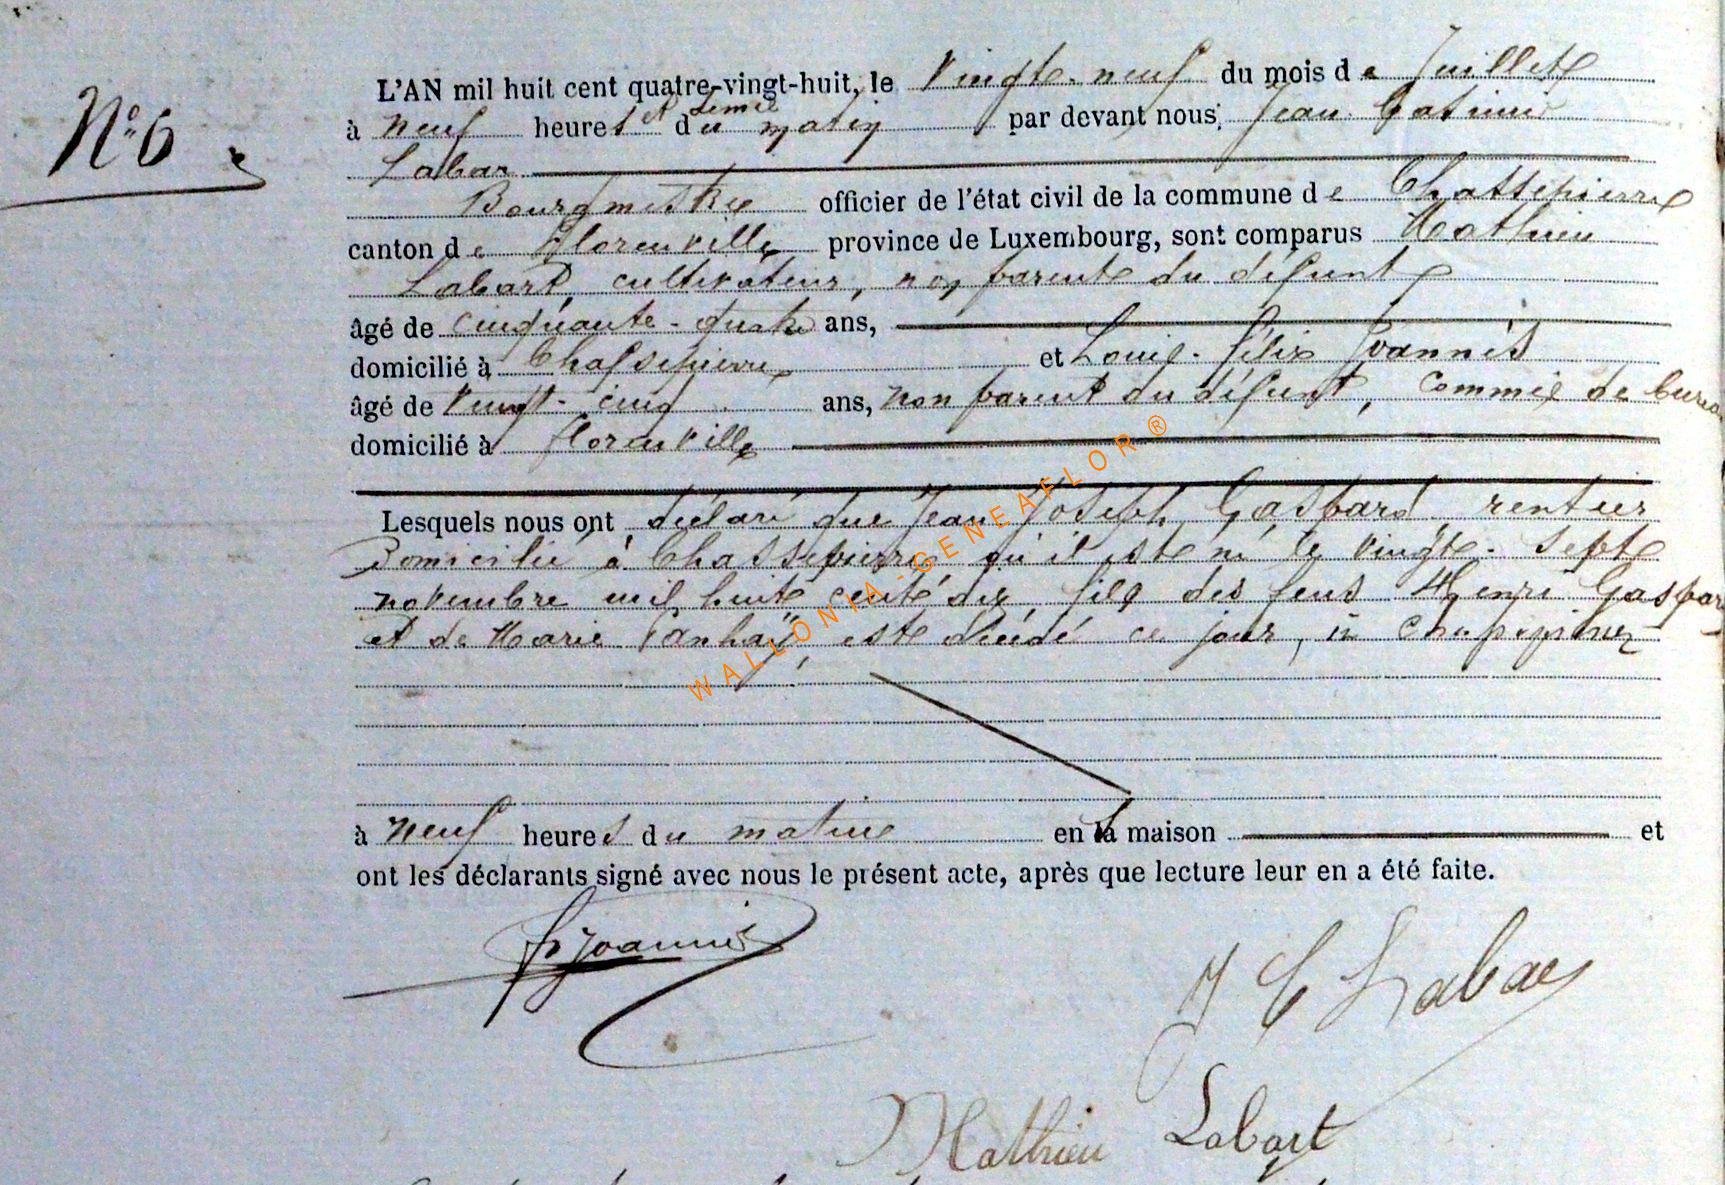 N° 6
L'AN mil huit cent quatre-vingt-huit, le Vingt-neuf du mois de Juillet
à neuf heures et demie du matin par devant nous, Jean Casimir
Labar
Bourgmestre officier de l'état civil de la commune de Chassepierre
canton de Florenville province de Luxembourg, sont comparus Mathieu
Labart, cultivateur, non parent du défunt
âgé de cinquante-quatre ans,
domicilié à Chassepierre et Louis-Félix Joannes
âgé de vingt-cinq ans, non parent du défunt, commis de bureau
domicilié à Florenville
Lesquels nous ont déclaré que Jean Joseph Gaspard, rentier
Domicilié à Chassepierre qu'il est né le vingt-sept
novembre mil huit cent dix, fils des feus Henri Gaspar
et de Marie Panhaÿ, est décédé ce jour, à Chassepierre
à neuf heures du matin en la maison et
ont les déclarants signé avec nous le présent acte, après que lecture leur en a été faite.
Joannes
J C Labar
Mathieu Labart
WALLONIA-GENEAFLOR ®